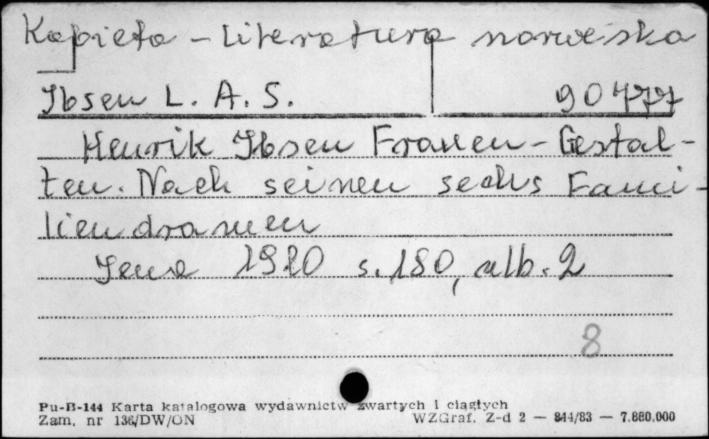 Kobieta - literatura norweska
Ibsen L. A. S. 90477
Henrik Ibsen Frauen-Gestal-
ten. Nach seinen sechs Fami-
liendramen
Jena 1910 s. 180, alb. 2
8
Pu-B-144 Karta katalogowa wydawnictw zwartych i ciągłych
Zam. nr 136/DW/ON WZGraf. Z-d 2 — 844/83 — 7.880.000